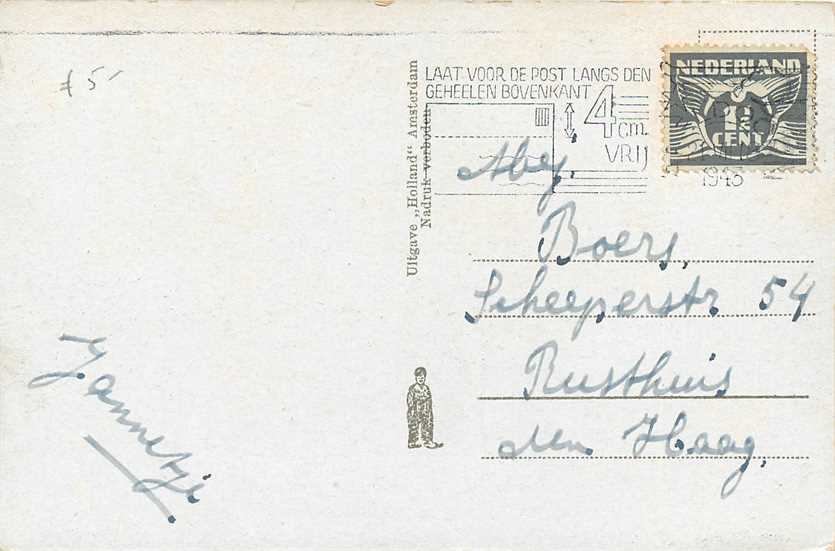 f 5-
LAAT VOOR DE POST LANGS DEN
GEHEELEN BOVENKANT
4 cm.
VRIJ
NEDERLAND
CENT
1943
Uitgave „Holland" Amsterdam
Nadruk verboden
Boers,
Scheeperstr 54
Rusthuis
den Haag,
Jannetje